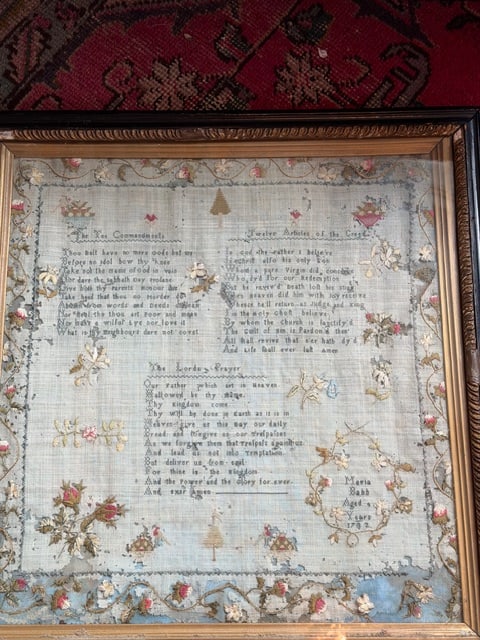 The Ten Commandments
Thou shalt have no more Gods but me
Before no idol bow thy knee
Take not the name of God in vain
Nor dare the sabbath day profane
Give both thy parents honour due
Take heed that thou no Murder do
Abstain from words and Deeds unclean
Nor steal tho thou art Poor and mean
Nor make a wilful Lye nor love it
What is thy neighbours dare not covet
Twelve Articles of the Creed
In God the Father I believe
his only son
Whom a pure Virgin did conceive
Who died for our Redemption
heaven did him with Joy receive
Whence he'll return as Judge and King
In the Holy Ghost I believe
By whom the Church is sanctify'd
The Guilt of Sin is Pardon'd
All shall revive that e'er hath dy'd
And Life shall ever last amen
The Lords Prayer
Our Father which art in Heaven
Hallowed be thy name
Thy Kingdom come
Thy will be done in Earth as it is in
Heaven give us this day our daily
Bread and forgive us our Trespasses
As we forgive them that Trespass against us
And lead us not into Temptation
But deliver us from evil
For thine is the Kingdom
And the Power and the Glory for ever
And ever amen
Maria
Babb
Aged
Years